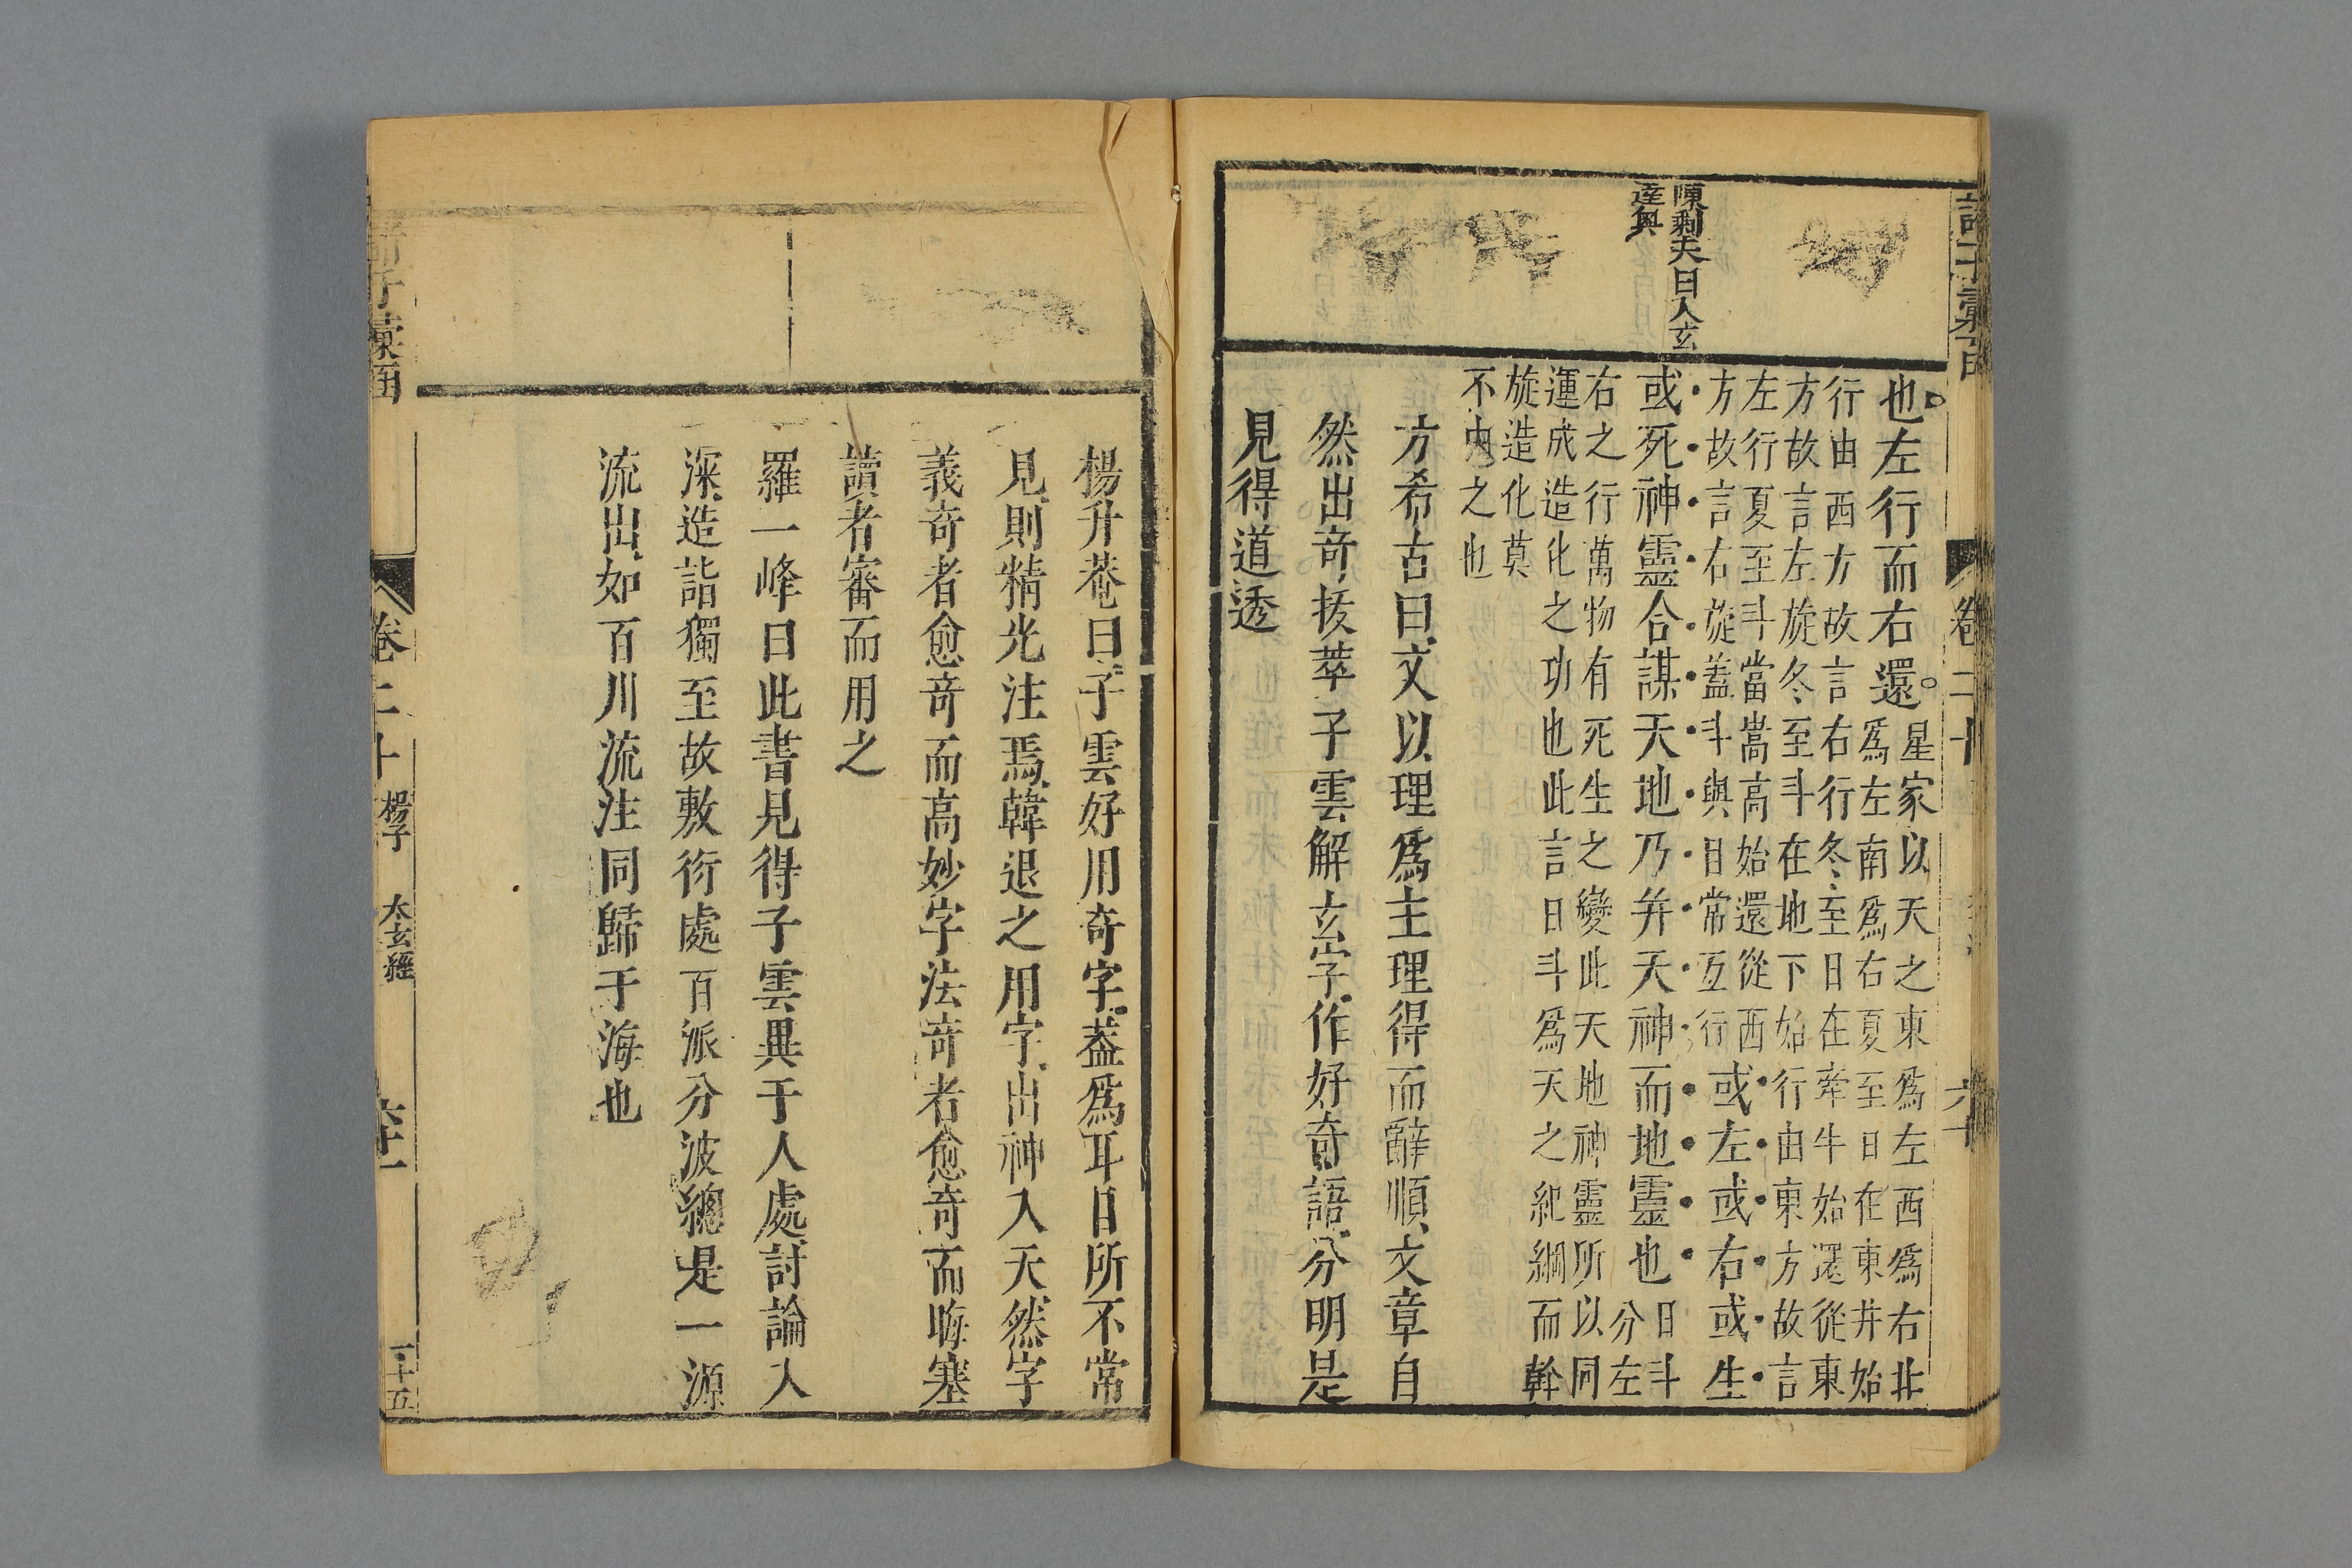 諸子彙函 卷二十 六十
陳剩夫曰人玄
達奧
也左行而右還
星家以天之東爲左西爲右北
爲左南爲右夏至日在東井始
行由西方故言右行冬至日在牽牛始還從東
方故言左旋冬至斗在地下始行由東方故言
左行夏至斗當嵩高始還從西
方故言右旋蓋斗與日常互行
或左或右或生
或死神靈合謀天地乃并天神而地靈也
日斗
分左
右之行萬物有死生之變此天地神靈所以同
運成造化之功也此言日斗爲天之紀綱而斡
旋造化莫
不由之也
方希古曰文以理爲主理得而辭順文章自
然出奇拔萃子雲解玄字作好奇語分明是
見得道透
楊升菴曰子雲好用奇字蓋爲耳目所不常
見則精光注焉韓退之用字出神入天然字
義奇者愈奇而高妙字法奇者愈奇而晦塞
讀者審而用之
羅一峰曰此書見得子雲異于人處討論入
深造詣獨至故敷衍處百派分波總是一源
流出如百川流注同歸于海也
諸子彙函 卷二十 楊子 太玄經 六十一 二十五